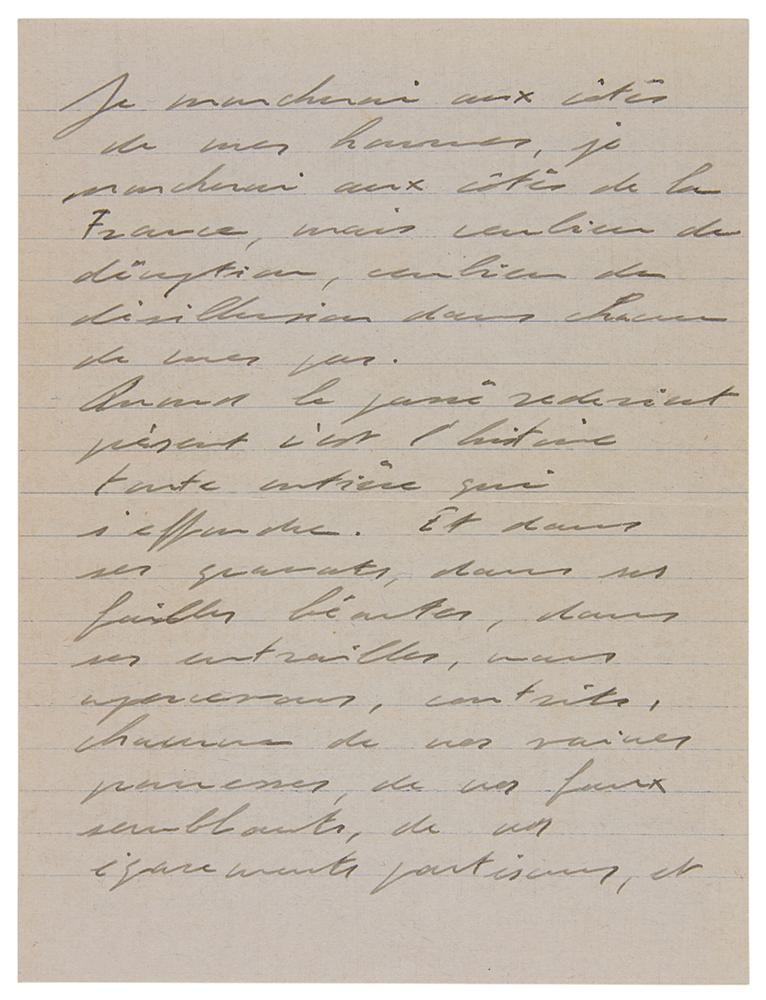 Je marcherai aux côtés
de mes hommes, je
marcherai aux côtés de la
France, mais combien de
déception, combien de
désillusion dans chacun
de mes pas.
Quand le passé redevient
présent c'est l'histoire
toute entière qui
s'effondre. Et dans
ses gravats, dans ses
failles béantes, dans
ses entrailles, nous
apercevons, contrits,
chacune de nos vaines
promesses, de nos faux
semblants, de nos
égarements partisans, et